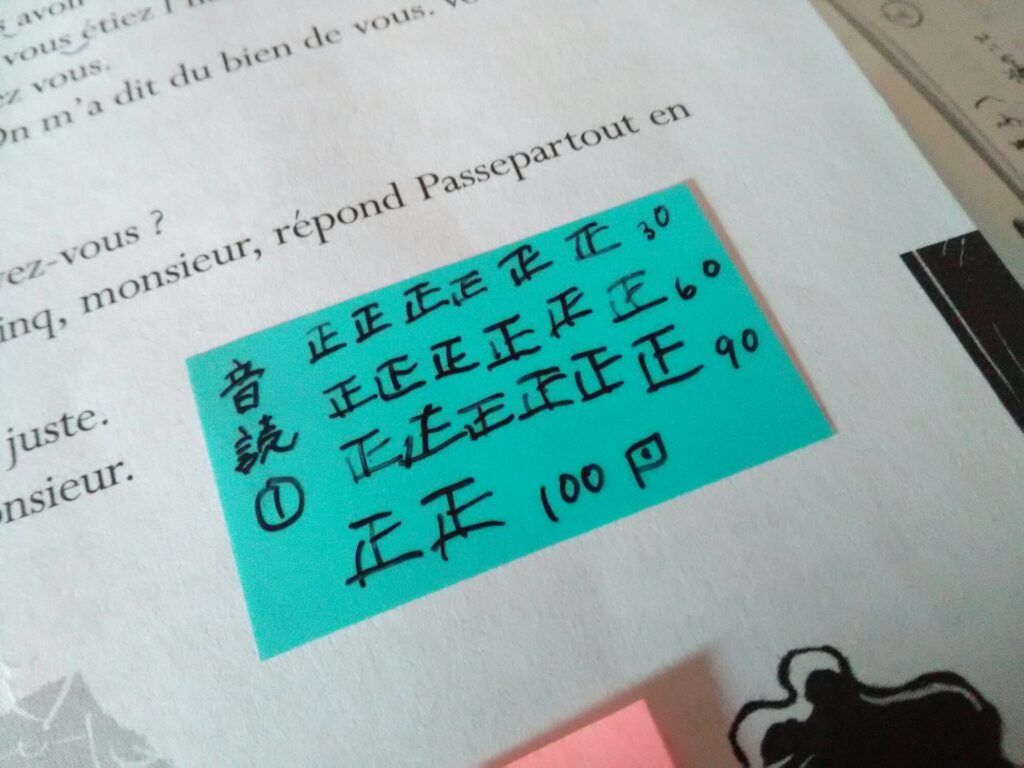 vous étiez l'
ez vous.
On m'a dit du bien de vous.
vez-vous ?
inq, monsieur, répond Passepartout en
juste.
onsieur.
音読①
正正正正正正 30
正正正正正正 60
正正正正正正 90
正正 100回